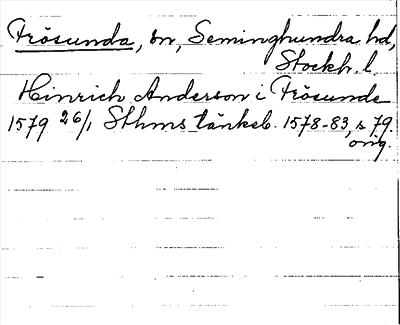 Frösunda, sn, Seminghundra hd,
Stockh. l.
Hinrich Anderson i Frösunde
1579 26/1 Sthms tänkeb. 1578-83, s 79.
orig.